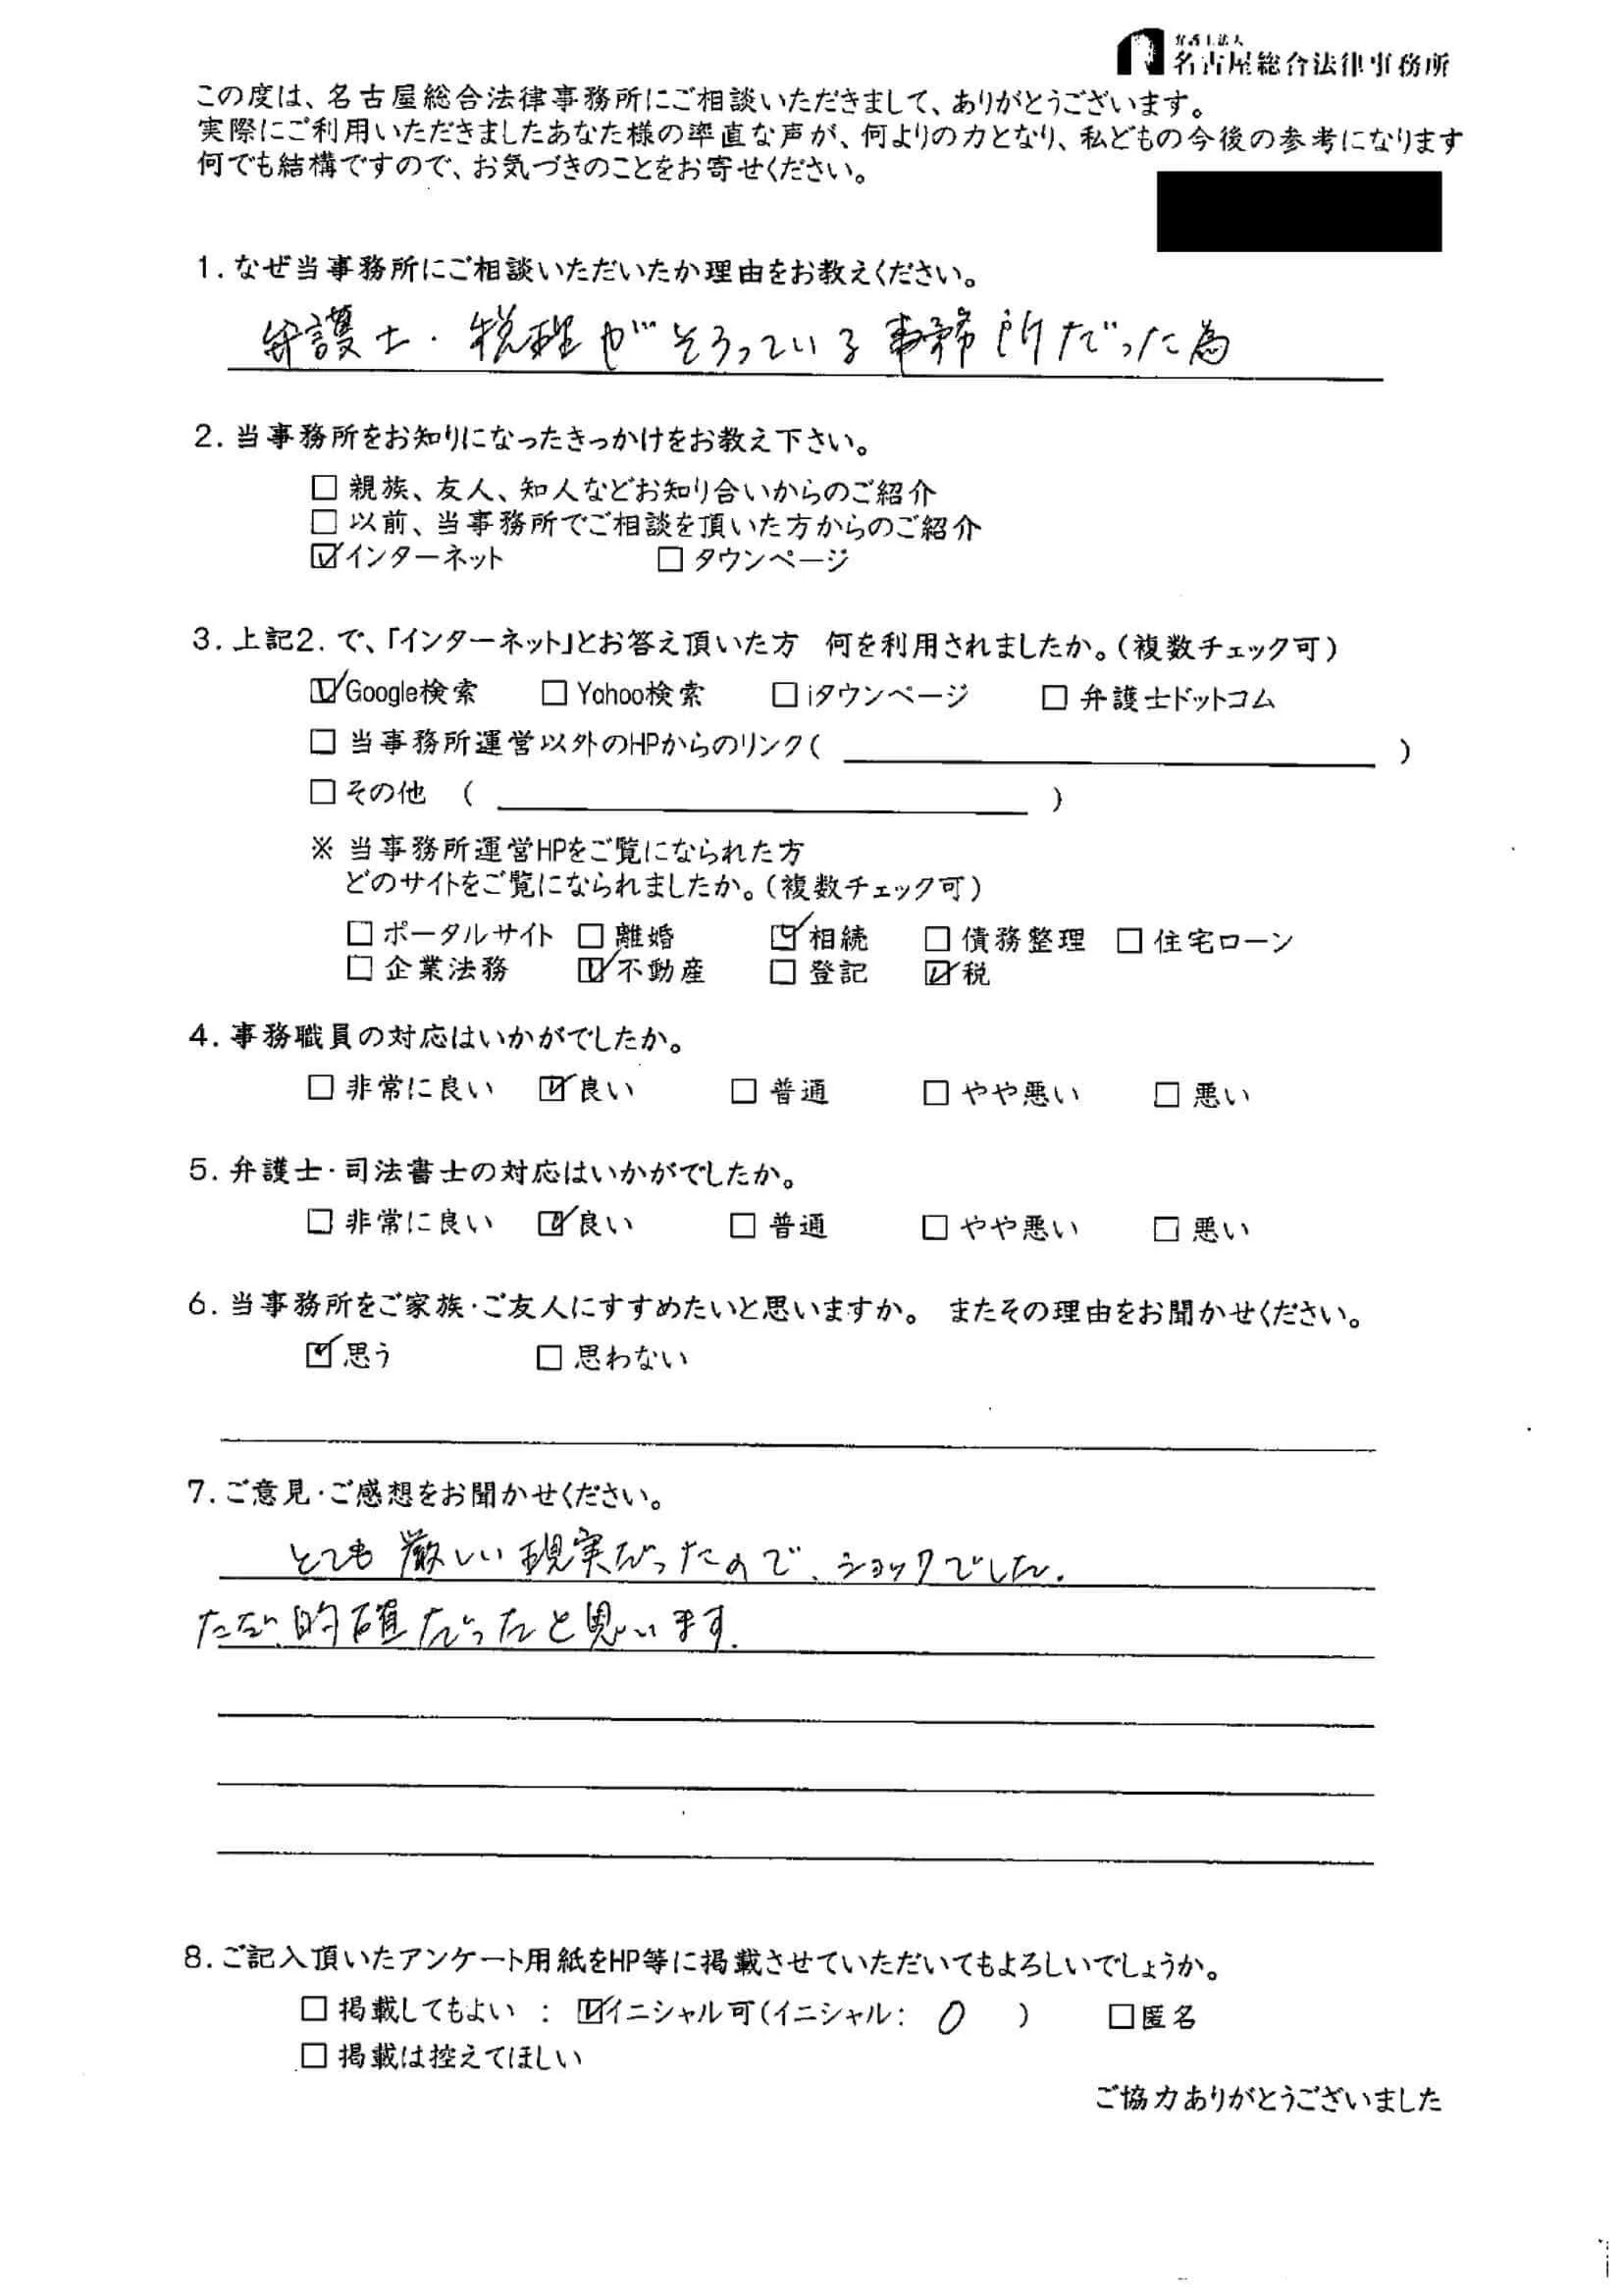 弁護士法人
名古屋総合法律事務所
この度は、名古屋総合法律事務所にご相談いただきまして、ありがとうございます。
実際にご利用いただきましたあなた様の率直な声が、何よりの力となり、私どもの今後の参考になります
何でも結構ですので、お気づきのことをお寄せください。
1.なぜ当事務所にご相談いただいたか理由をお教えください。
弁護士・税理がそろっている事務所だった為
2.当事務所をお知りになったきっかけをお教え下さい。
□ 親族、友人、知人などお知り合いからのご紹介
□ 以前、当事務所でご相談を頂いた方からのご紹介
☑インターネット □ タウンページ
3.上記2.で、「インターネット」とお答え頂いた方 何を利用されましたか。(複数チェック可)
☑Google検索 □ Yahoo検索 □ iタウンページ □ 弁護士ドットコム
□ 当事務所運営以外のHPからのリンク( )
□ その他 ( )
※ 当事務所運営HPをご覧になられた方
どのサイトをご覧になられましたか。(複数チェック可)
□ ポータルサイト □ 離婚 ☑ 相続 □ 債務整理 □ 住宅ローン
□ 企業法務 ☑ 不動産 □ 登記 ☑ 税
4.事務職員の対応はいかがでしたか。
□ 非常に良い ☑ 良い □ 普通 □ やや悪い □ 悪い
5.弁護士・司法書士の対応はいかがでしたか。
□ 非常に良い ☑ 良い □ 普通 □ やや悪い □ 悪い
6.当事務所をご家族・ご友人にすすめたいと思いますか。 またその理由をお聞かせください。
☑ 思う □ 思わない
7.ご意見・ご感想をお聞かせください。
とても厳しい現実だったので、ショックでした.
ただ、的確だったと思います.
8.ご記入頂いたアンケート用紙をHP等に掲載させていただいてもよろしいでしょうか。
□ 掲載してもよい : ☑イニシャル可(イニシャル: O ) □匿名
□ 掲載は控えてほしい
ご協力ありがとうございました